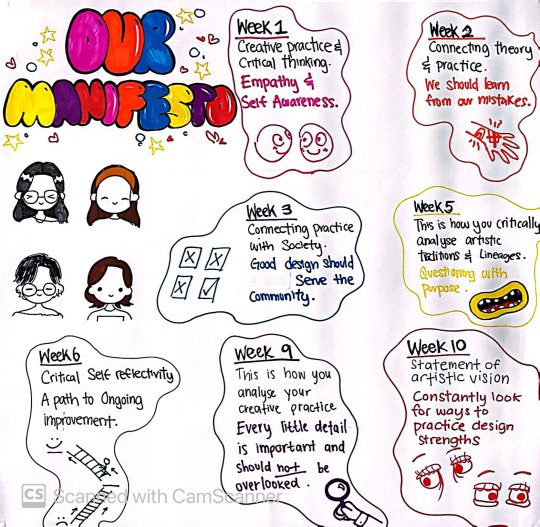 OUR
MANIFESTO
Week 1
Creative practice &
Critical thinking.
Empathy &
Self Awareness.
Week 2
Connecting theory
& practice.
We should learn
from our mistakes.
Week 3
Connecting practice
with Society.
Good design should
Serve the
Community.
Week 5
This is how you critically
analyse artistic
traditions & Lineages.
Questioning with
purpose.
Week 6
Critical Self reflectivity
A path to Ongoing
improvement.
Week 9
This is how you
analyse your
creative practice
Every little detail
is important and
should not be
overlooked.
Week 10
Statement of
artistic vision
Constantly look
for ways to
practice design
strengths
CS Scanned with CamScanner